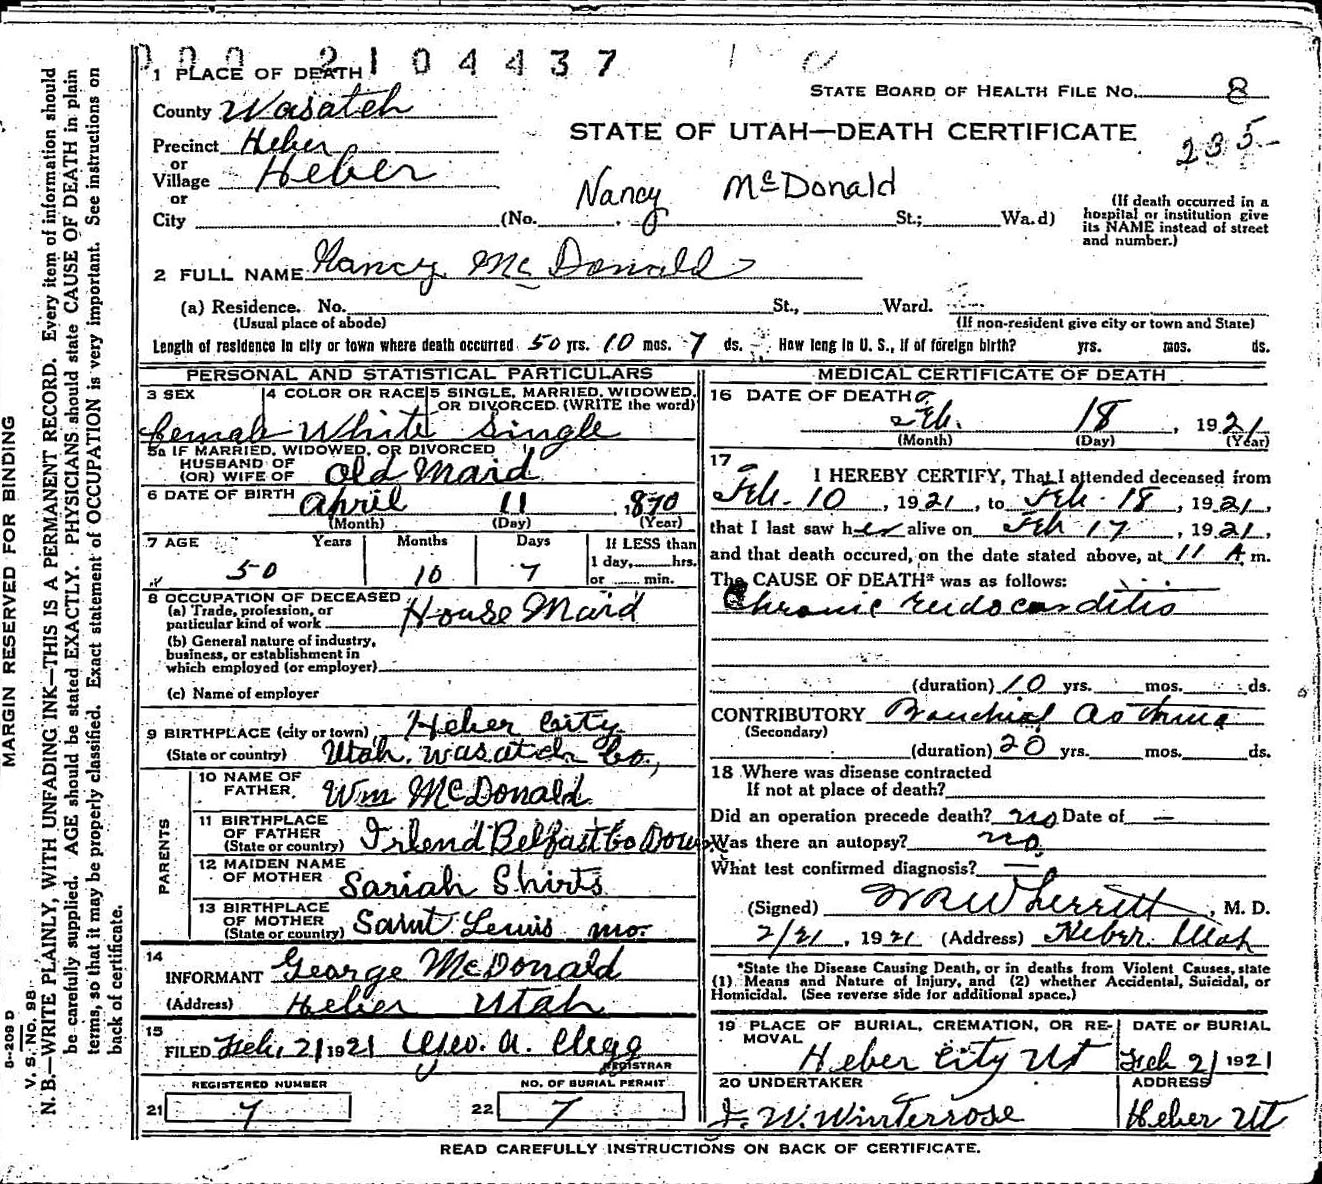 000 2104437
1 PLACE OF DEATH
STATE BOARD OF HEALTH FILE NO. 8
County Wasatch
STATE OF UTAH—DEATH CERTIFICATE
235-
Precinct Heber
or
Village Heber
or
Nancy McDonald
City (No. St.; Wa.d)
(If death occurred in a hospital or institution give its NAME instead of street and number.)
2 FULL NAME Nancy McDonald
(a) Residence. No. St., Ward.
(Usual place of abode) (If non-resident give city or town and State)
Length of residence in city or town where death occurred 50 yrs. 10 mos. 7 ds. How long in U. S., if of foreign birth? yrs. mos. ds.
PERSONAL AND STATISTICAL PARTICULARS
3 SEX 4 COLOR OR RACE 5 SINGLE, MARRIED, WIDOWED, OR DIVORCED. (WRITE the word)
female White Single
5a IF MARRIED, WIDOWED, OR DIVORCED
HUSBAND OF
(OR) WIFE OF Old Maid
6 DATE OF BIRTH April 11, 1870
(Month) (Day) (Year)
7 AGE Years Months Days If LESS than 1 day, hrs. or min.
50 10 7
8 OCCUPATION OF DECEASED
(a) Trade, profession, or particular kind of work House Maid
(b) General nature of industry, business, or establishment in which employed (or employer)
(c) Name of employer
9 BIRTHPLACE (city or town) Heber City
(State or country) Utah. Wasatch Co.,
PARENTS
10 NAME OF FATHER Wm McDonald
11 BIRTHPLACE OF FATHER (State or country) Irlend Belfast Co Down
12 MAIDEN NAME OF MOTHER Sariah Shirts
13 BIRTHPLACE OF MOTHER (State or country) Saint Lewis mo.
14
INFORMANT George McDonald
(Address) Heber Utah
15
FILED Feb, 21 1921 Geo. A. Clegg
REGISTRAR
REGISTERED NUMBER NO. OF BURIAL PERMIT
21 7 22 7
MEDICAL CERTIFICATE OF DEATH
16 DATE OF DEATH
Feb. 18, 1921
(Month) (Day) (Year)
17
I HEREBY CERTIFY, That I attended deceased from
Feb. 10, 1921, to Feb. 18, 1921,
that I last saw her alive on Feb 17, 1921,
and that death occured, on the date stated above, at 11 A m.
The CAUSE OF DEATH* was as follows:
Chronic endocarditis
(duration) 10 yrs. mos. ds.
CONTRIBUTORY Bronchial Asthma
(Secondary)
(duration) 20 yrs. mos. ds.
18 Where was disease contracted
If not at place of death?
Did an operation precede death? no Date of —
Was there an autopsy? no.
What test confirmed diagnosis? —
(Signed) W R Wherritt, M. D.
2/21, 1921 (Address) Heber Utah
*State the Disease Causing Death, or in deaths from Violent Causes, state (1) Means and Nature of Injury, and (2) whether Accidental, Suicidal, or Homicidal. (See reverse side for additional space.)
19 PLACE OF BURIAL, CREMATION, OR REMOVAL DATE OF BURIAL
Heber City Ut Feb 21 1921
20 UNDERTAKER ADDRESS
J. W. Winterrose Heber Ut
READ CAREFULLY INSTRUCTIONS ON BACK OF CERTIFICATE.
MARGIN RESERVED FOR BINDING
N. B.—WRITE PLAINLY, WITH UNFADING INK—THIS IS A PERMANENT RECORD. Every item of information should
be carefully supplied. AGE should be stated EXACTLY. PHYSICIANS should state CAUSE OF DEATH in plain
terms, so that it may be properly classified. Exact statement of OCCUPATION is very important. See instructions on
back of certificate.
V. S. No. 98
8-209 D